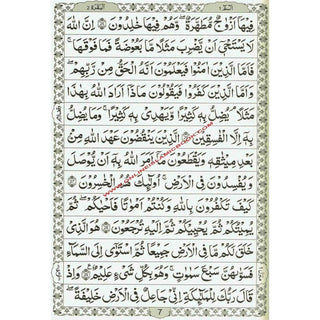 البقرة ٢
الٓمٓ ١
فِيْهَآ اَزْوَاجٌ مُّطَهَّرَةٌ ۙ وَّهُمْ فِيْهَا خٰلِدُوْنَ ۝ اِنَّ اللّٰهَ
لَا يَسْتَحْىٖٓ اَنْ يَّضْرِبَ مَثَلًا مَّا بَعُوْضَةً فَمَا فَوْقَهَا ؕ
فَاَمَّا الَّذِيْنَ اٰمَنُوْا فَيَعْلَمُوْنَ اَنَّهُ الْحَقُّ مِنْ رَّبِّهِمْ ۚ
وَاَمَّا الَّذِيْنَ كَفَرُوْا فَيَقُوْلُوْنَ مَاذَآ اَرَادَ اللّٰهُ بِهٰذَا
مَثَلًا ۘ يُضِلُّ بِهٖ كَثِيْرًا ۙ وَّيَهْدِىْ بِهٖ كَثِيْرًا ؕ وَمَا يُضِلُّ
بِهٖٓ اِلَّا الْفٰسِقِيْنَ ۝ الَّذِيْنَ يَنْقُضُوْنَ عَهْدَ اللّٰهِ مِنْۢ
بَعْدِ مِيْثَاقِهٖ ۪ وَيَقْطَعُوْنَ مَآ اَمَرَ اللّٰهُ بِهٖٓ اَنْ يُّوْصَلَ
وَيُفْسِدُوْنَ فِى الْاَرْضِ ؕ اُولٰٓئِكَ هُمُ الْخٰسِرُوْنَ ۝
كَيْفَ تَكْفُرُوْنَ بِاللّٰهِ وَكُنْتُمْ اَمْوَاتًا فَاَحْيَاكُمْ ۚ ثُمَّ
يُمِيْتُكُمْ ثُمَّ يُحْيِيْكُمْ ثُمَّ اِلَيْهِ تُرْجَعُوْنَ ۝ هُوَ الَّذِىْ
خَلَقَ لَكُمْ مَّا فِى الْاَرْضِ جَمِيْعًا ۗ ثُمَّ اسْتَوٰٓى اِلَى السَّمَآءِ
فَسَوّٰىهُنَّ سَبْعَ سَمٰوٰتٍ ؕ وَهُوَ بِكُلِّ شَىْءٍ عَلِيْمٌ ۝ وَاِذْ
قَالَ رَبُّكَ لِلْمَلٰٓئِكَةِ اِنِّىْ جَاعِلٌ فِى الْاَرْضِ خَلِيْفَةً ؕ
7